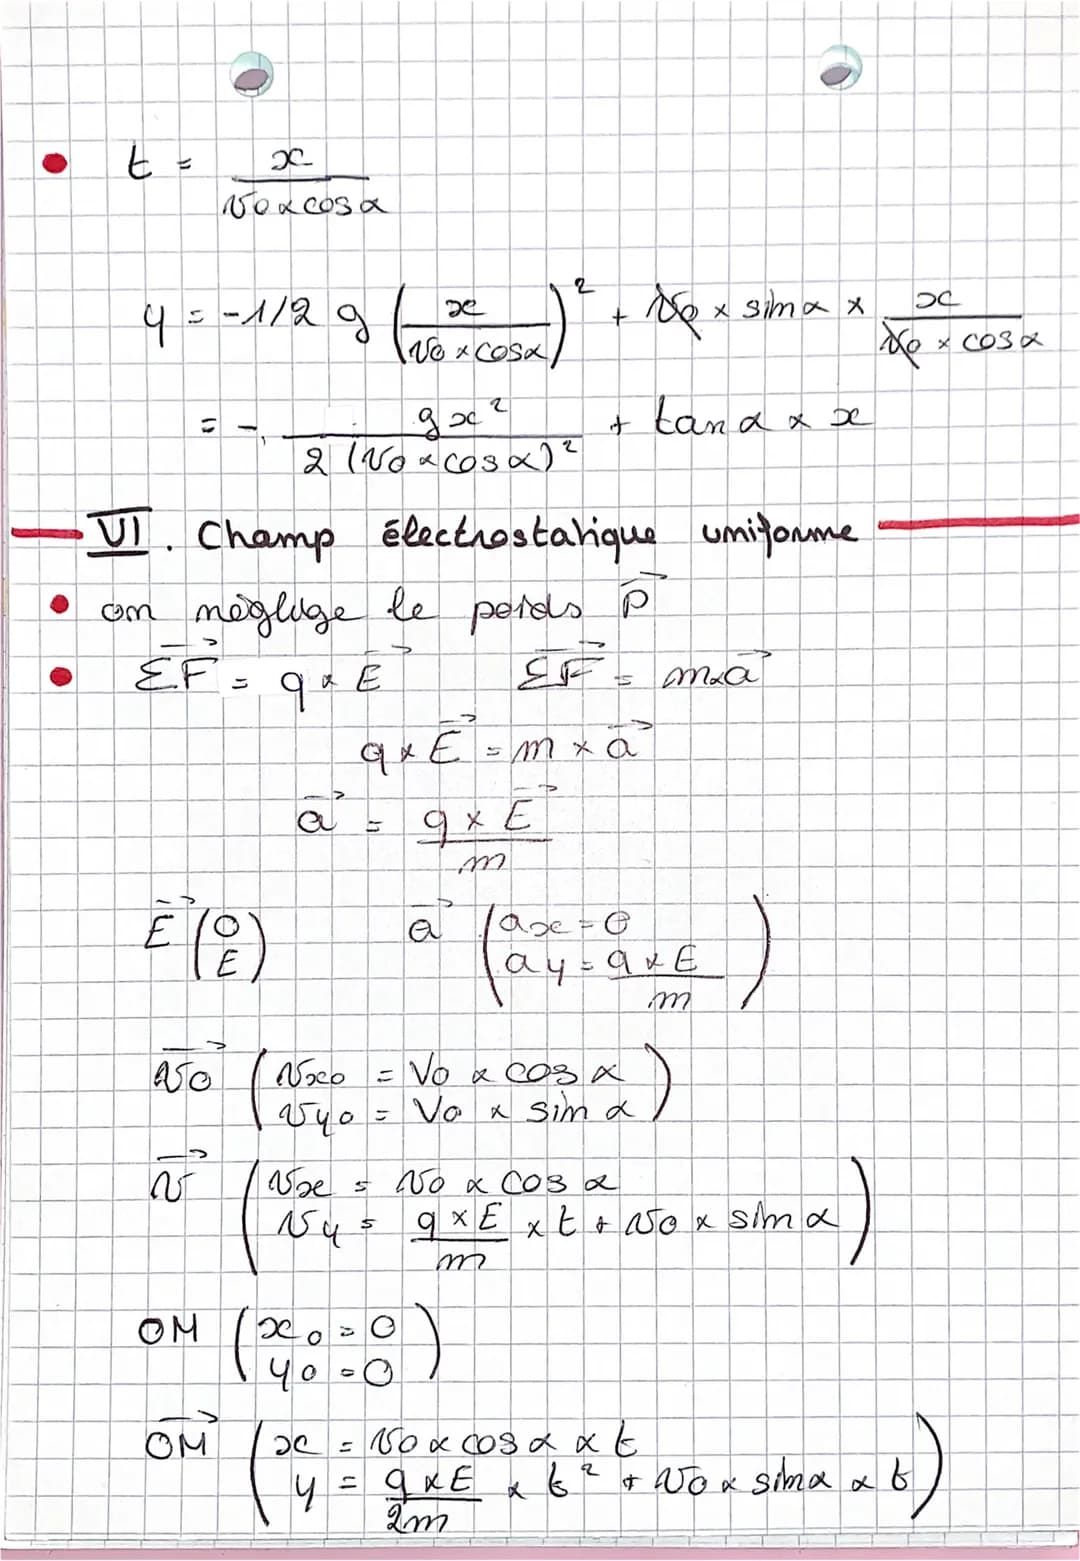 t = x / (v0 × cos α)
y = -1/2 g (x / (v0 × cos α))² + v0 × sin α × x / (v0 × cos α)
= - gx² / (2 (v0 × cos α)²) + tan α × x
VI. Champ électrostatique uniforme
on néglige le poids P⃗
ΣF⃗ = q × E⃗ ΣF⃗ = m × a⃗
q × E⃗ = m × a⃗
a⃗ = q × E⃗ / m
E⃗ (0 E) a⃗ (ax = 0 ay = q × E / m)
v0⃗ (vx0 = V0 × cos α
vy0 = V0 × sin α)
v⃗ (vx = v0 × cos α
vy = q × E / m × t + v0 × sin α)
OM (x0 = 0
y0 = 0)
OM⃗ (x = v0 × cos α × t
y = q × E / 2m × t² + v0 × sin α × t)